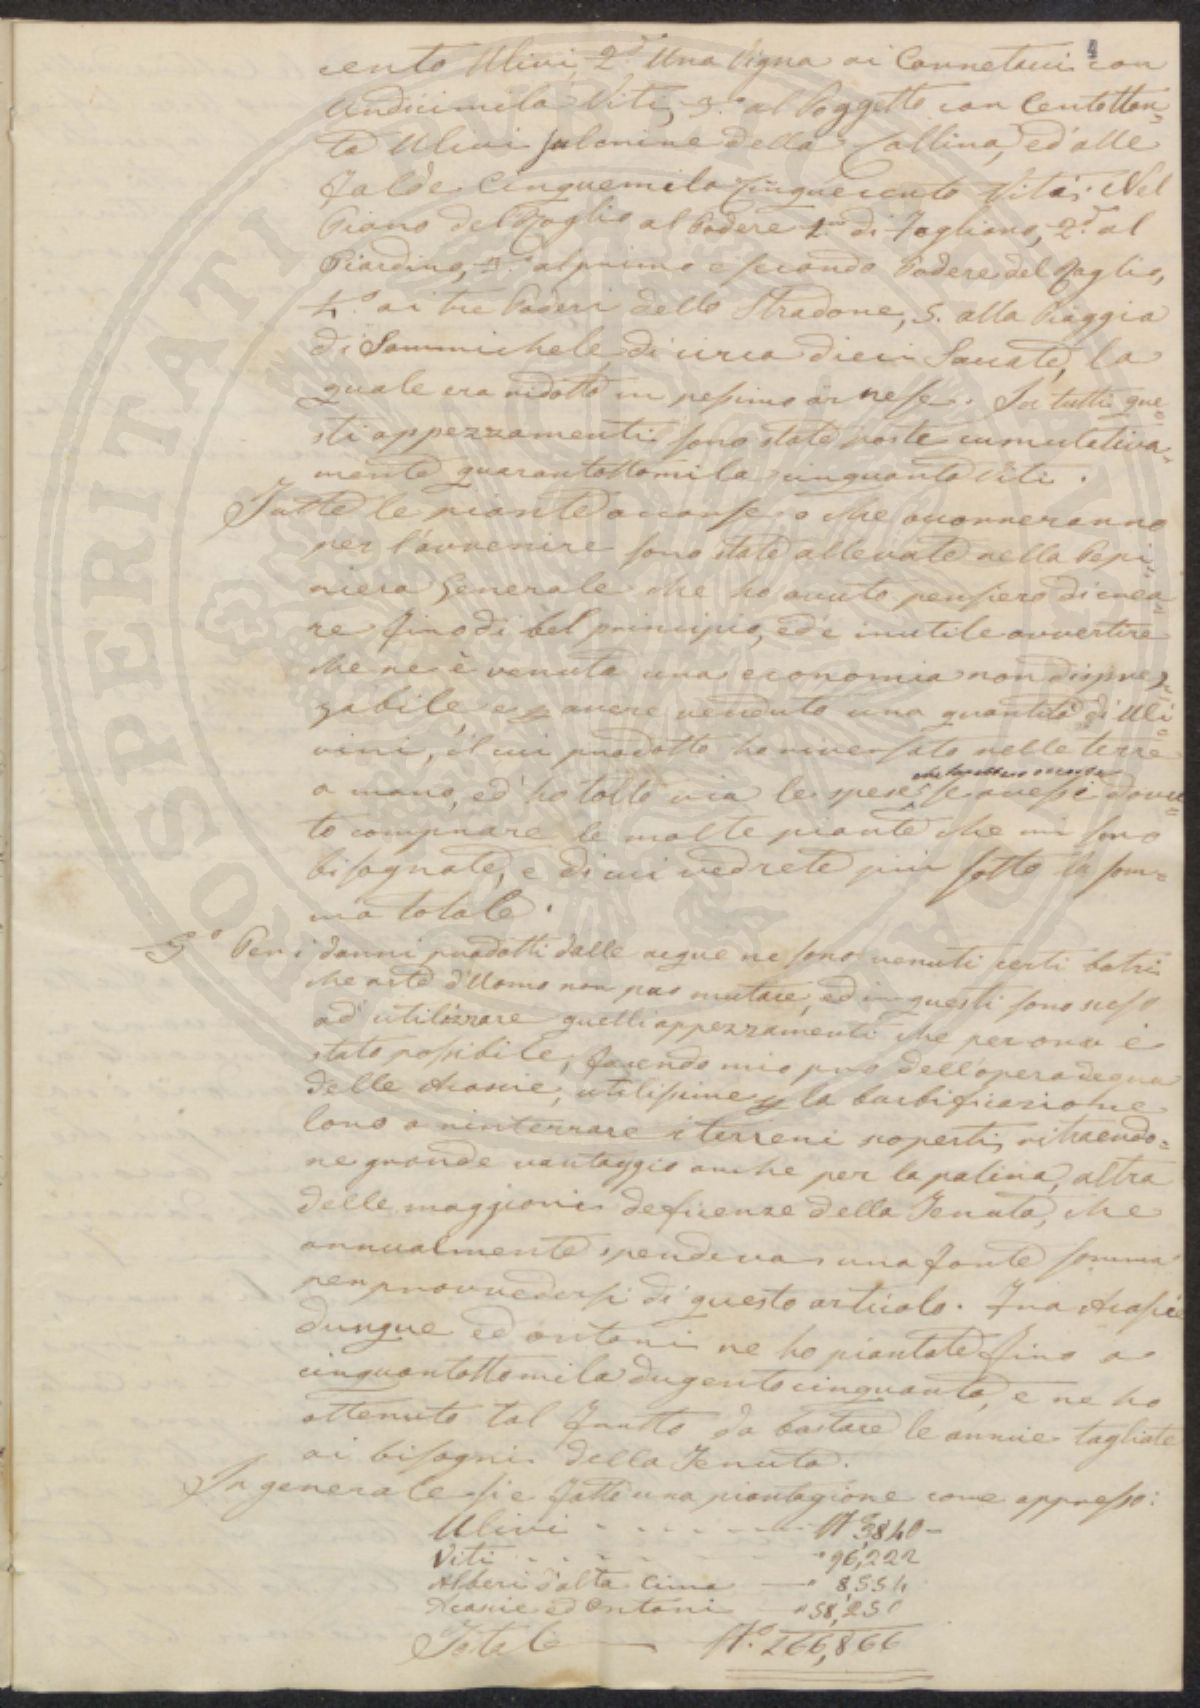 4
cento Ulivi, 2.° Una Vigna ai Cannetacci con
Undicimila Viti, 3.° al Poggetto con Centottan=
ta Ulivi sul crine della Collina, ed alle
falde Cinquemila Cinquecento Viti. Nel
Piano del Foglio al Podere 1.mo di Fogliano, 2.° al
Giardino, 3.° al primo e secondo Podere del Foglio,
4.° ai tre Poderi dello Stradone, 5. alla Piaggia
di Sammichele di circa dieci Saccate, la
quale era ridotta in pessimo arnese. In tutti que=
sti appezzamenti sono state poste cumulativa=
mente quarantottomila cinquanta Viti.
Tutte le piante occorse, o che occorreranno
per l'avvenire sono state allevate nella Pepi=
niera Generale che ho avuto pensiero di crea=
re fino di bel principio, ed è inutile avvertire
che ne è venuta una economia non disprez=
zabile, e p avere venduto una quantità di Uli=
vini, il cui prodotto ho riversato nelle terre
a mano, ed ho tolto via le spese se avessi dovu=
to comprare le molte piante che mi sono
bisognate, e di cui vedrete più sotto la som=
ma totale.
3.° Per i danni prodotti dalle acque ne sono venuti certi botri
che arte d'Uomo non può mutare, ed in questi sono sceso
ad utilizzare quelli appezzamenti che per ora è
stato possibile, facendo mio pro dell'opera degna
delle Acacie, utilissime p la barbificazione
loro a rinterrare i terreni scoperti, ritraendo=
ne grande vantaggio anche per la palina, altra
delle maggiori deficienze della Tenuta, che
annualmente spendeva una forte somma
per provvedersi di questo articolo. Fra Acacie
dunque ed ontani ne ho piantate fino a
cinquantottomila dugentocinquanta, e ne ho
ottenuto tal frutto da bastare le annue tagliate
ai bisogni della Tenuta.
In generale si è fatta una piantagione come appresso:
Ulivi - - - - - N.° 3,840 -
Viti - - - - - " 96,222
Alberi d'alta Cima — " 8,554
Acacie ed Ontani — " 58,250
Totale — N.° 166,866